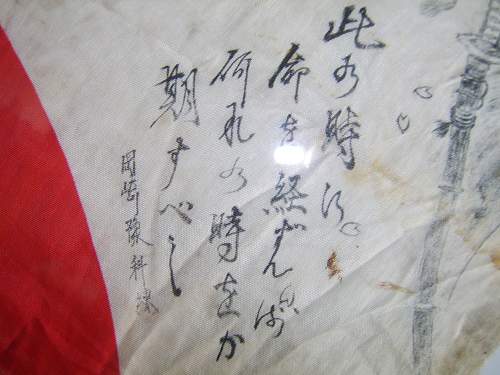 此の時に
命を経ずんば
何れの時をか
期すべし
岡崎豫科練